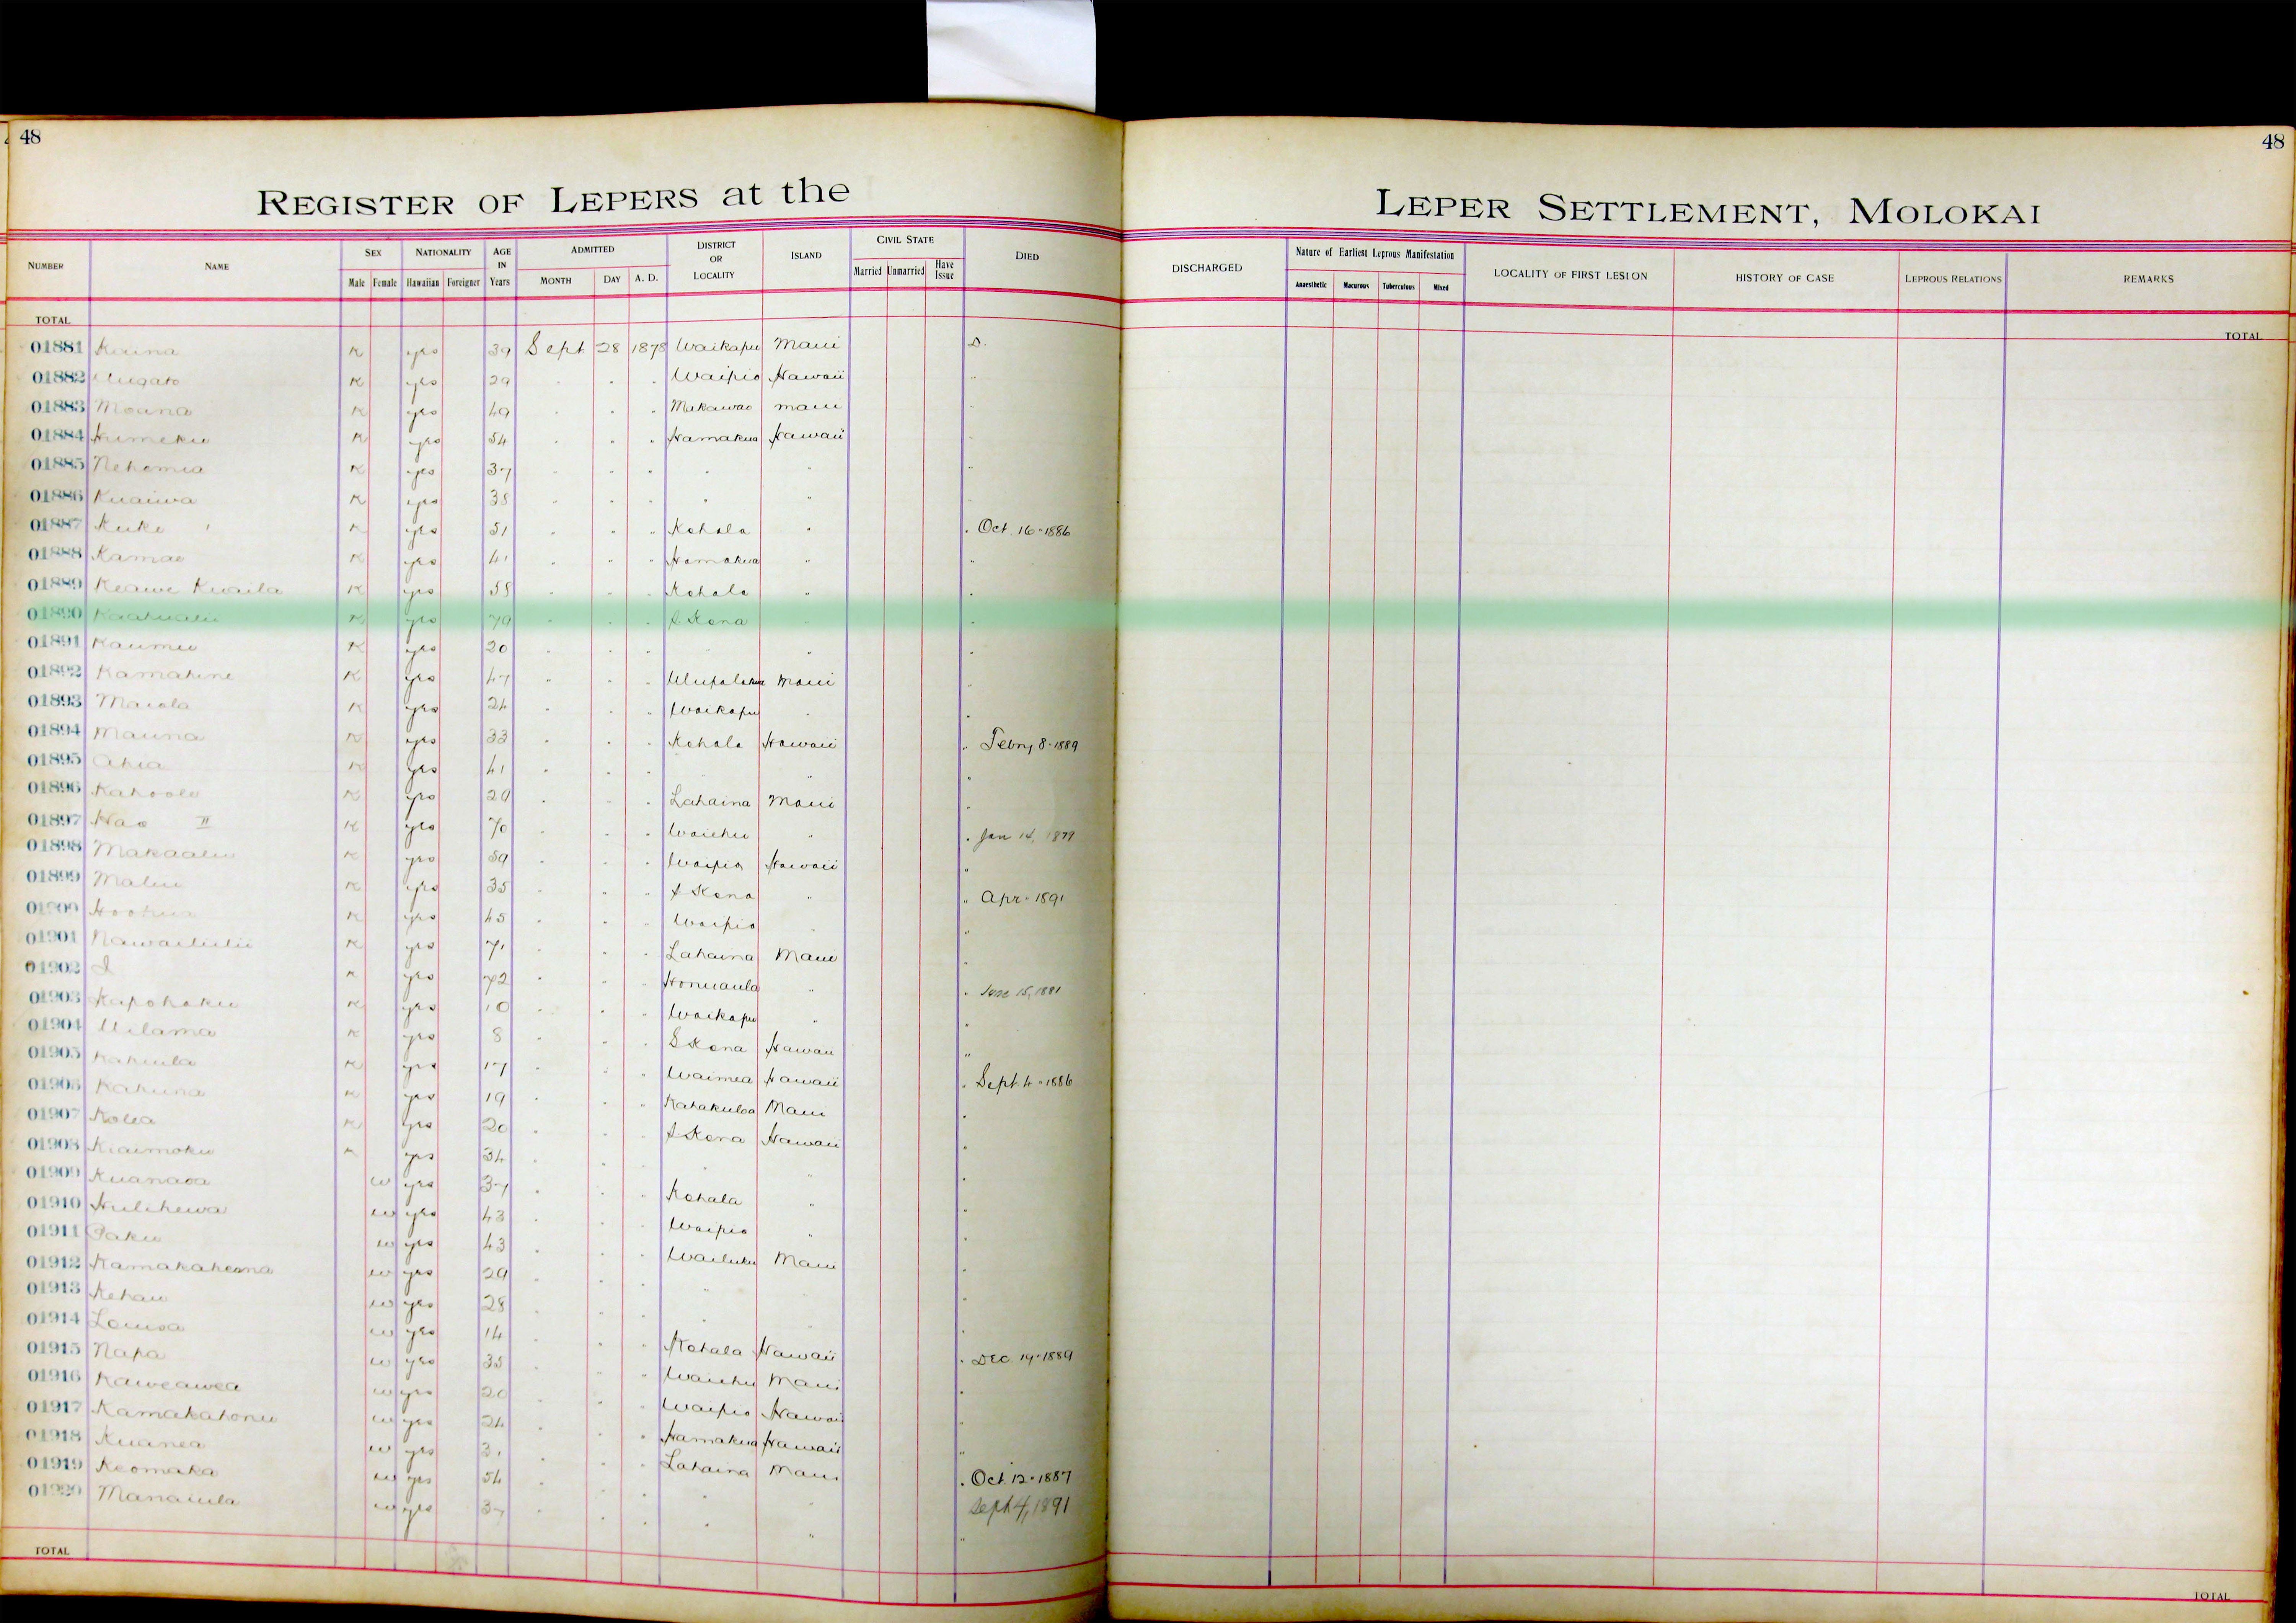 48
48
REGISTER OF LEPERS at the
LEPER SETTLEMENT, MOLOKAI
NUMBER NAME SEX NATIONALITY AGE IN Years ADMITTED DISTRICT OR LOCALITY ISLAND CIVIL STATE DIED DISCHARGED Nature of Earliest Leprous Manifestation LOCALITY OF FIRST LESION HISTORY OF CASE LEPROUS RELATIONS REMARKS
Male Female Hawaiian Foreigner MONTH DAY A. D. Married Unmarried Have Issue Anaesthetic Macurous Tuberculous Mixed
TOTAL TOTAL
01881 K yes 39 Sept 28 1878 Waikapu Maui D.
01882 K yes 29 " " " Waipio Hawaii "
01883 Moana K yes 49 " " " Makawao maui "
01884 Humeku K yes 54 " " " Hamakua Hawaii "
01885 Nehemia K yes 37 " " " " " "
01886 Kuaiwa K yes 38 " " " " " "
01887 Kuke K yes 51 " " " Kohala " " Oct. 16-1886
01888 Kamae K yes 41 " " " Hamakua " "
01889 Keawe Kuaila K yes 58 " " " Kohala " "
01890 K yes 79 " " " S Kona " "
01891 Kaumu K yes 20 " " " " " "
01892 Kamahine K yes 47 " " " Ulupalakua Maui "
01893 Maiola K yes 24 " " " Waikapu " "
01894 Mauna K yes 33 " " " Kohala Hawaii " Febry 8-1889
01895 Ahia K yes 41 " " " " " "
01896 Kahoolu K yes 29 " " " Lahaina Maui "
01897 Hao II K yes 70 " " " Waiehu " " Jan 14, 1879
01898 Makaalu K yes 59 " " " Waipio Hawaii "
01899 Malu K yes 35 " " " S Kona " " Apr. 1891
01900 Hoohua K yes 45 " " " Waipio " "
01901 Nawailulii K yes 71 " " " Lahaina Maui "
01902 I K yes 72 " " " Honuaula " " June 15, 1881
01903 Kapohaku K yes 10 " " " Waikapu " "
01904 Uilama K yes 8 " " " S Kona Hawaii "
01905 Kahiula K yes 17 " " " Waimea Hawaii " Sept. 4-1886
01906 Kahuna K yes 19 " " " Kahakuloa Maui "
01907 Kolea K yes 20 " " " S Kona Hawaii "
01908 Kiaimoku K yes 34 " " " " " "
01909 Kuanaoa w yes 37 " " " Kohala " "
01910 Hulihewa w yes 43 " " " Waipio " "
01911 Paku w yes 43 " " " Wailuku Maui "
01912 w yes 29 " " " " "
01913 Kehau w yes 28 " " " "
01914 Louisa w yes 14 " " " Kohala Hawaii " Dec. 19-1889
01915 Napa w yes 35 " " " Waiehu Maui "
01916 Kaweawea w yes 20 " " " Waipio Hawaii "
01917 Kamakahonu w yes 24 " " " Hamakua Hawaii "
01918 Kuanea w yes 31 " " " Lahaina Maui " Oct 12-1887
01919 Keomaka w yes 54 " " " " " Sept 4, 1891
01920 Manaiula w yes 37 " " " " " "
TOTAL TOTAL